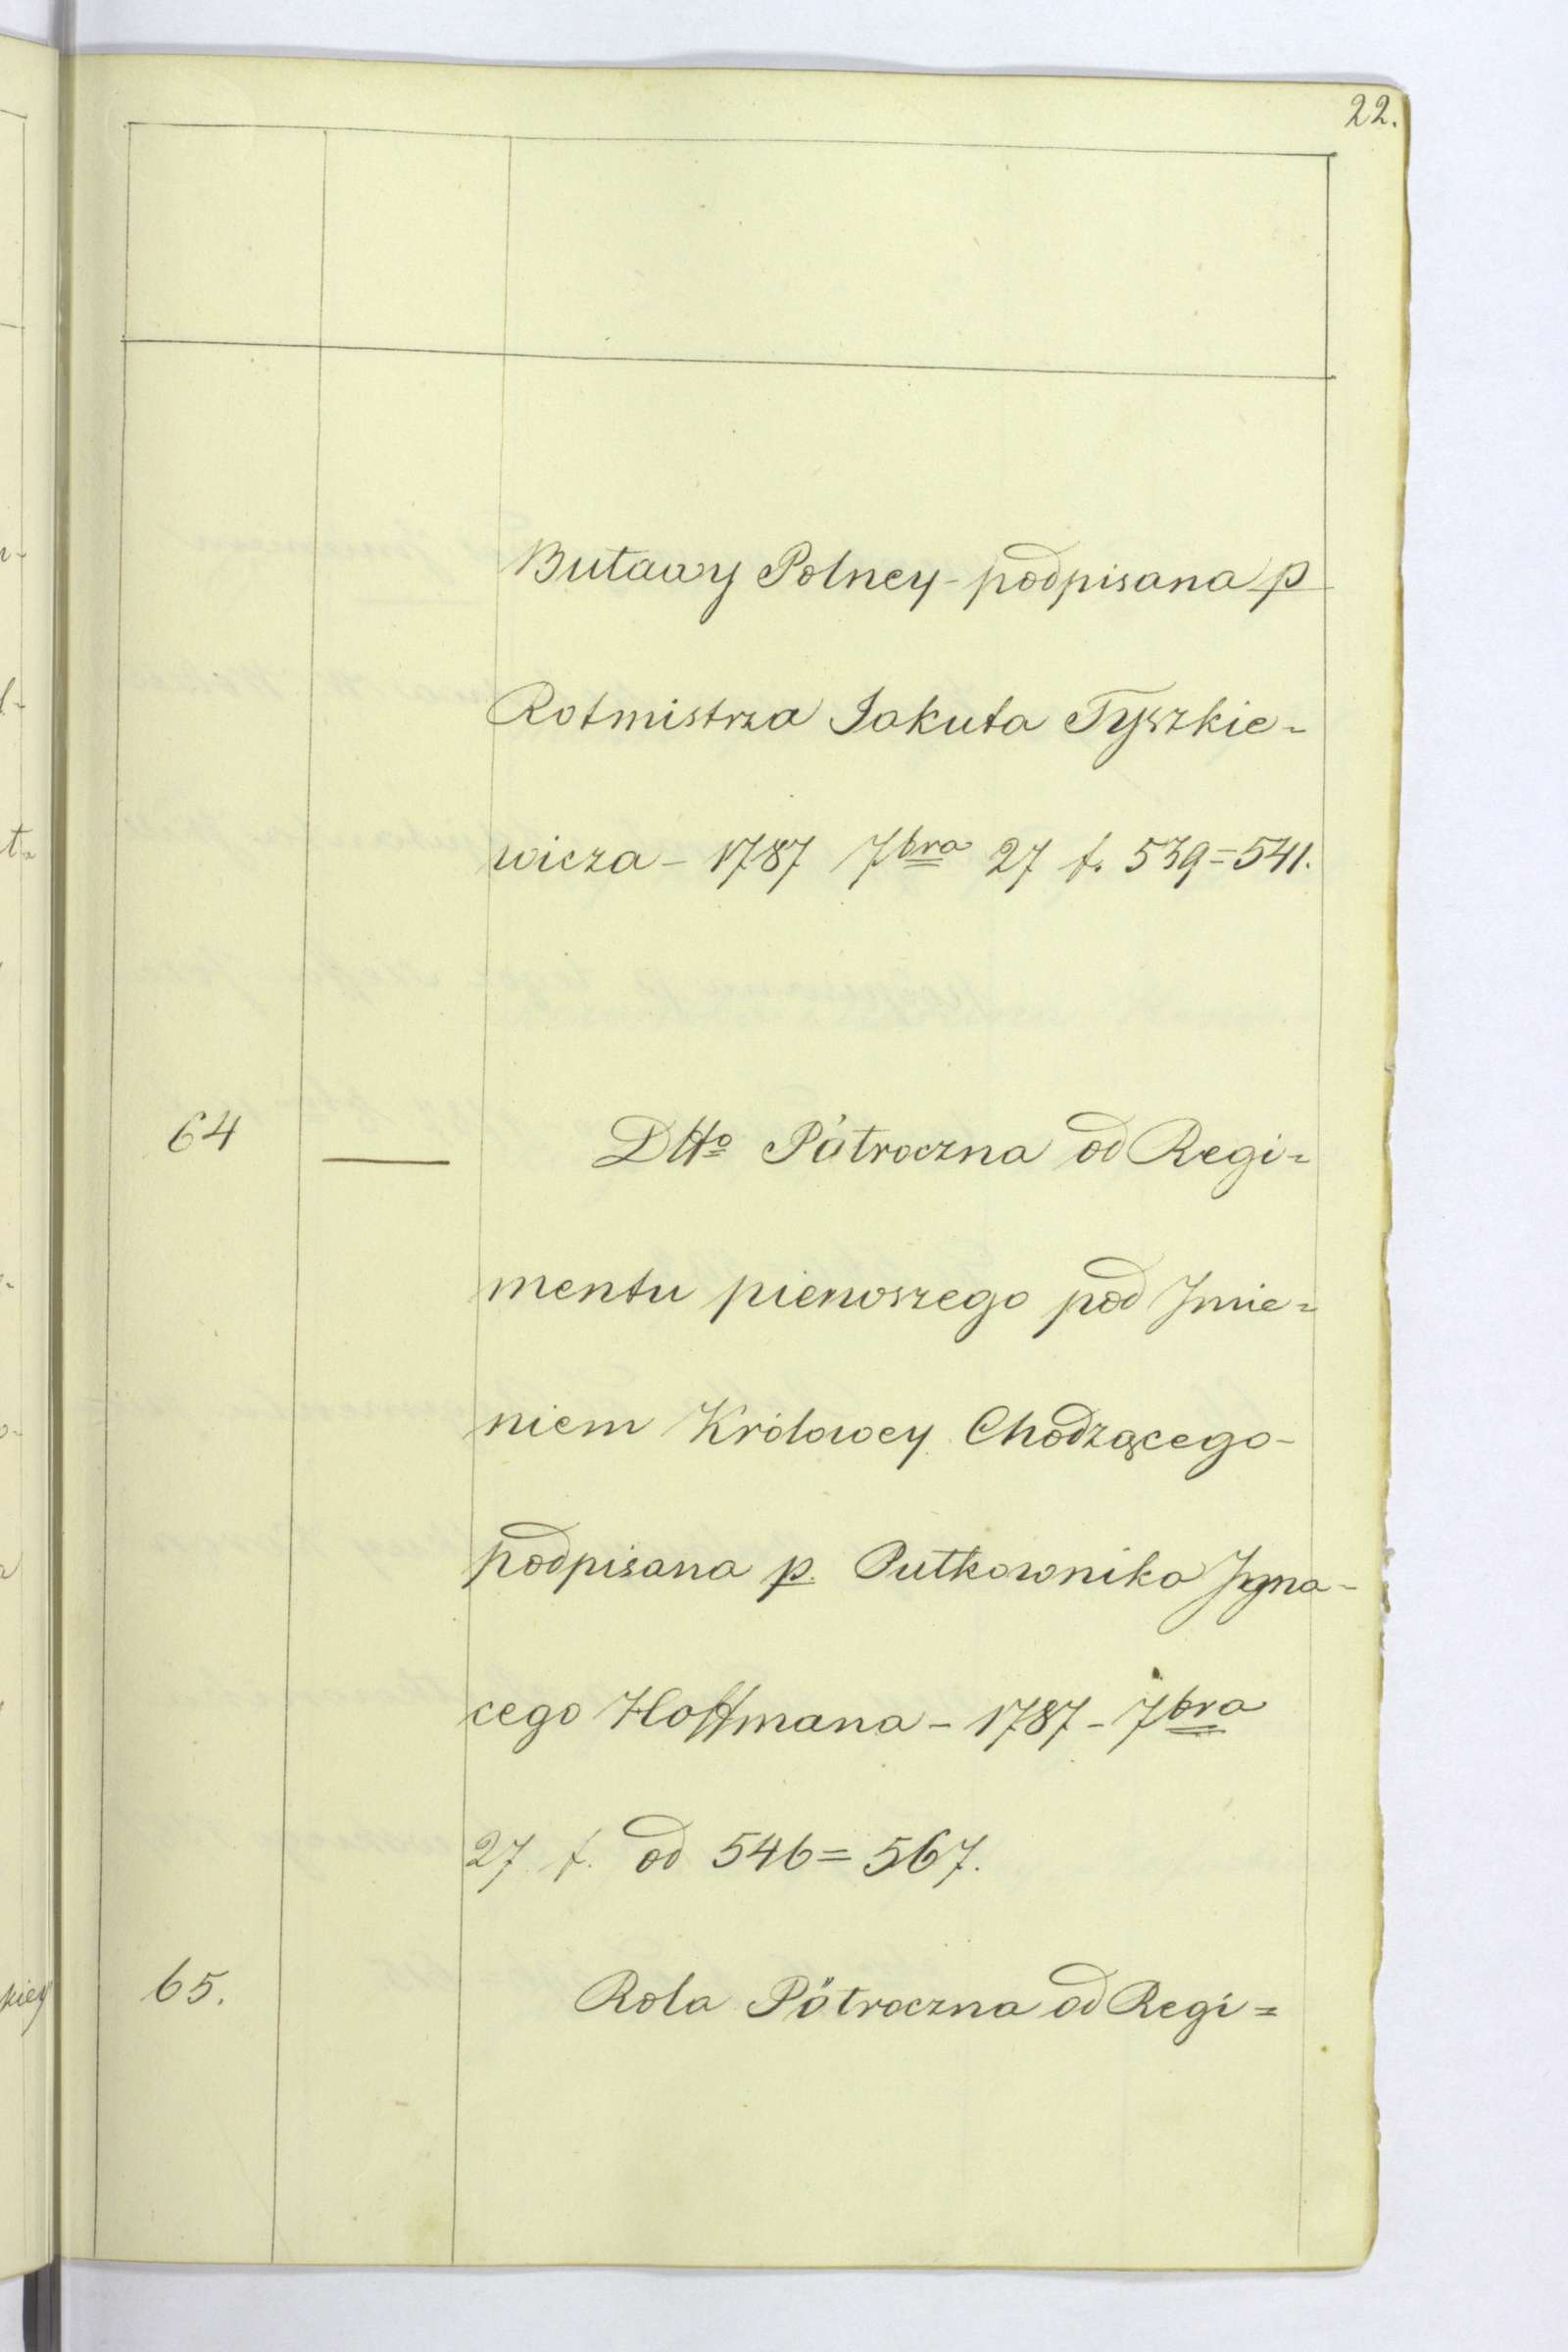 22.
Buławy Polney - podpisana p
Rotmistrza Jakuba Tyszkie-
wicza - 1787 7bra 27 f. 539=541.
64 — Dtto Półroczna od Regi=
mentu pierwszego pod Jmie=
niem Królowey Chodzącego -
podpisana p. Pułkownika Jgna-
cego Hoffmana - 1787 - 7bra
27 f. od 546=567.
65. Rola Półroczna od Regi=